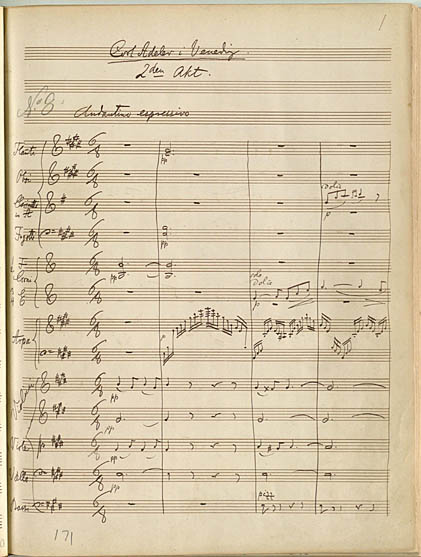 1
Cort Adeler i Venedig.
2den Akt.
No 8.
Andantino espressivo
Flauti
Oboi
Clarinetti
in A
Fagotti
Corni
Arpa
Violini
Viola
Cello
Basso
pp
dolce
p
pp
pp
solo
dolce
p
p
pp
pp
pp
pp
pizz
171